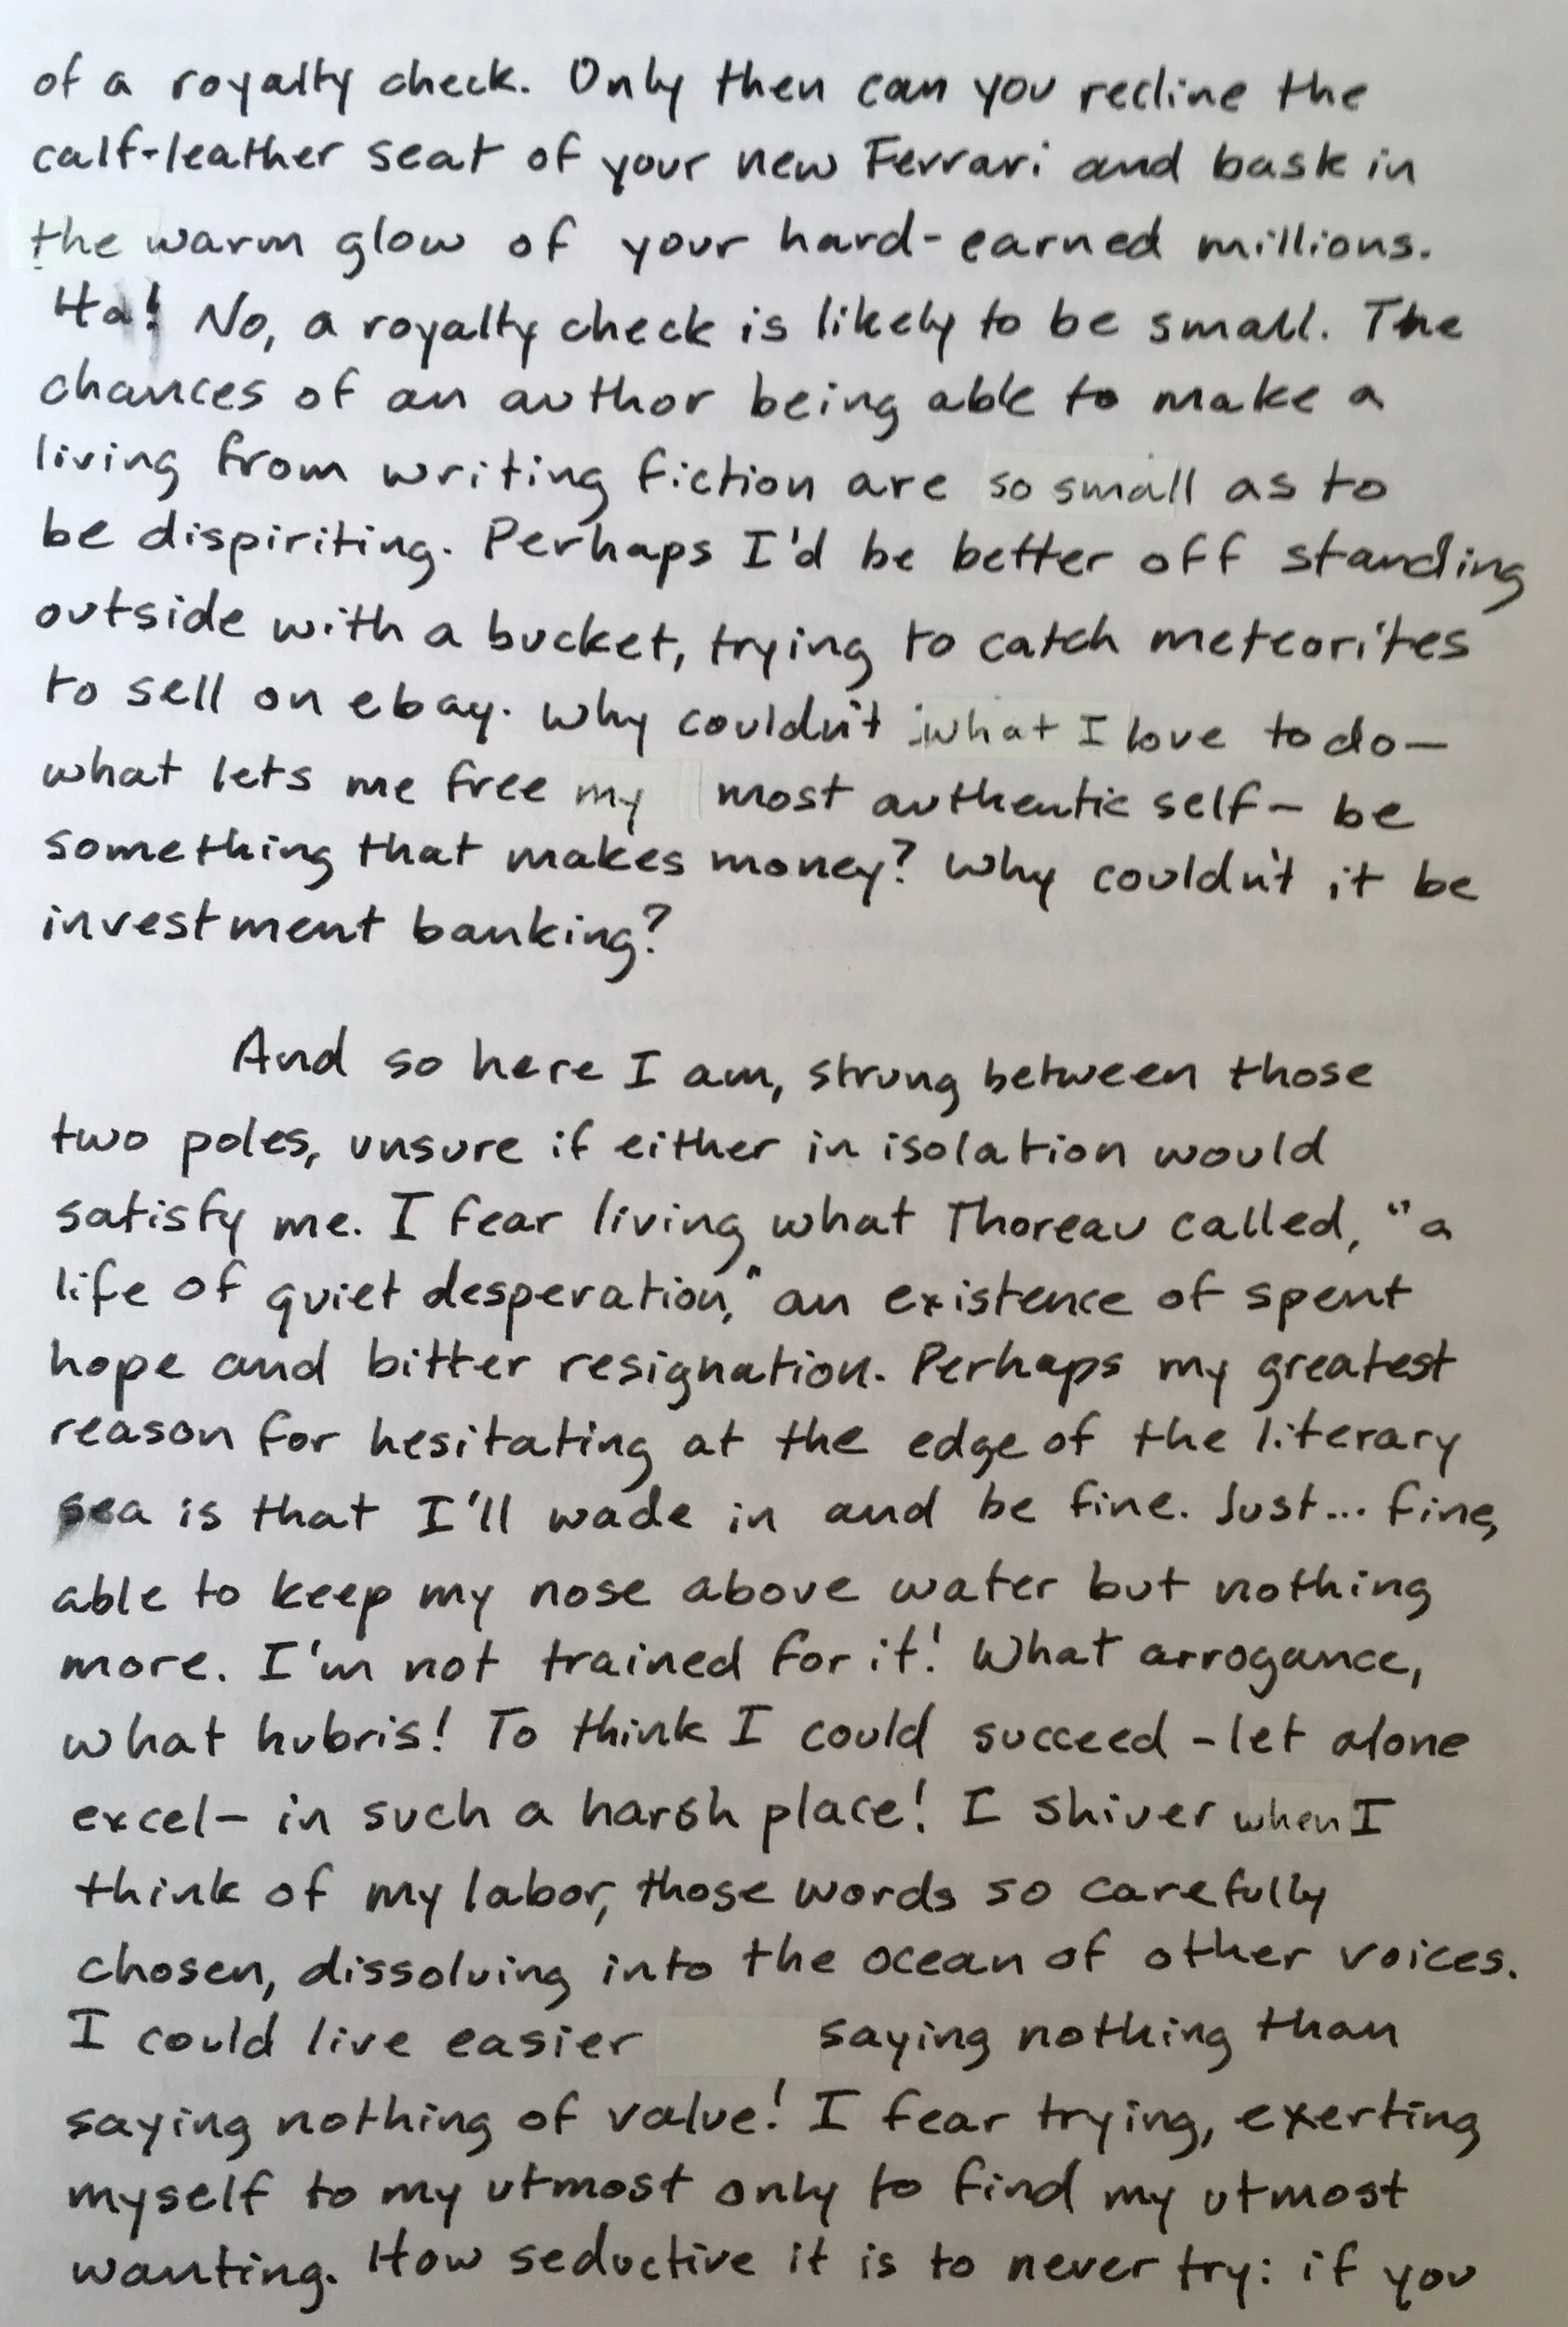 of a royalty check. Only then can you recline the
calf-leather seat of your new Ferrari and bask in
the warm glow of your hard-earned millions.
Ha! No, a royalty check is likely to be small. The
chances of an author being able to make a
living from writing fiction are so small as to
be dispiriting. Perhaps I'd be better off standing
outside with a bucket, trying to catch meteorites
to sell on ebay. Why couldn't what I love to do—
what lets me free my most authentic self— be
something that makes money? Why couldn't it be
investment banking?
And so here I am, strung between those
two poles, unsure if either in isolation would
satisfy me. I fear living what Thoreau called, "a
life of quiet desperation," an existence of spent
hope and bitter resignation. Perhaps my greatest
reason for hesitating at the edge of the literary
sea is that I'll wade in and be fine. Just... fine,
able to keep my nose above water but nothing
more. I'm not trained for it! What arrogance,
what hubris! To think I could succeed -let alone
excel- in such a harsh place! I shiver when I
think of my labor, those words so carefully
chosen, dissolving into the ocean of other voices.
I could live easier saying nothing than
saying nothing of value! I fear trying, exerting
myself to my utmost only to find my utmost
wanting. How seductive it is to never try: if you